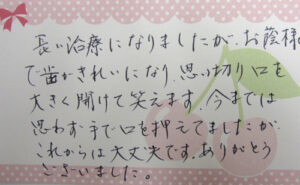 長い治療になりましたが、お蔭様
で歯がきれいになり、思い切り口を
大きく開けて笑えます。今までは
思わず手で口を押えてましたが、
これからは大丈夫です。ありがとう
ございました。